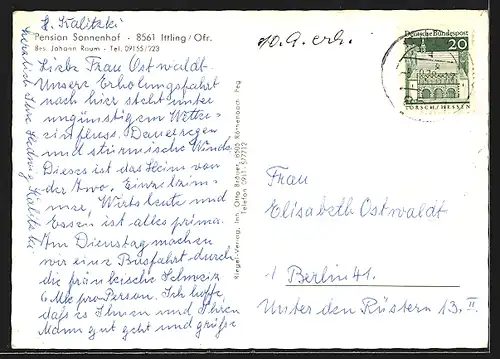 H. Kalitzki
Pension Sonnenhof - 8561 Ittling/Ofr.
Bes. Johann Raum - Tel. 09155/223
Liebe Frau Ostwaldt.
Unsere Erholungsfahrt
nach hier steht unter
ungünstigem Wetter-
einfluss. Dauerregen
und stürmische Winde
Dieses ist das Heim von
der Awo. Einzelzim-
mer, Wirtsleute und
Essen ist alles prima.
Am Dienstag machen
wir eine Busfahrt durch
die fränkische Schweiz
6 Mk pro Person. Ich hoffe,
daß es Ihnen und Ihren
Mann gut geht und grüße
herzlich Ihre Hedwig Kalitzki
Rieger-Verlag, Inh. Otto Beiner, 8505 Röthenbach, Peg
Telefon 0911-577712
10.9. erh.
Deutsche Bundespost
20
LORSCH/HESSEN
Frau
Elisabeth Ostwaldt
1 Berlin 41.
Unter den Rüstern 13. II